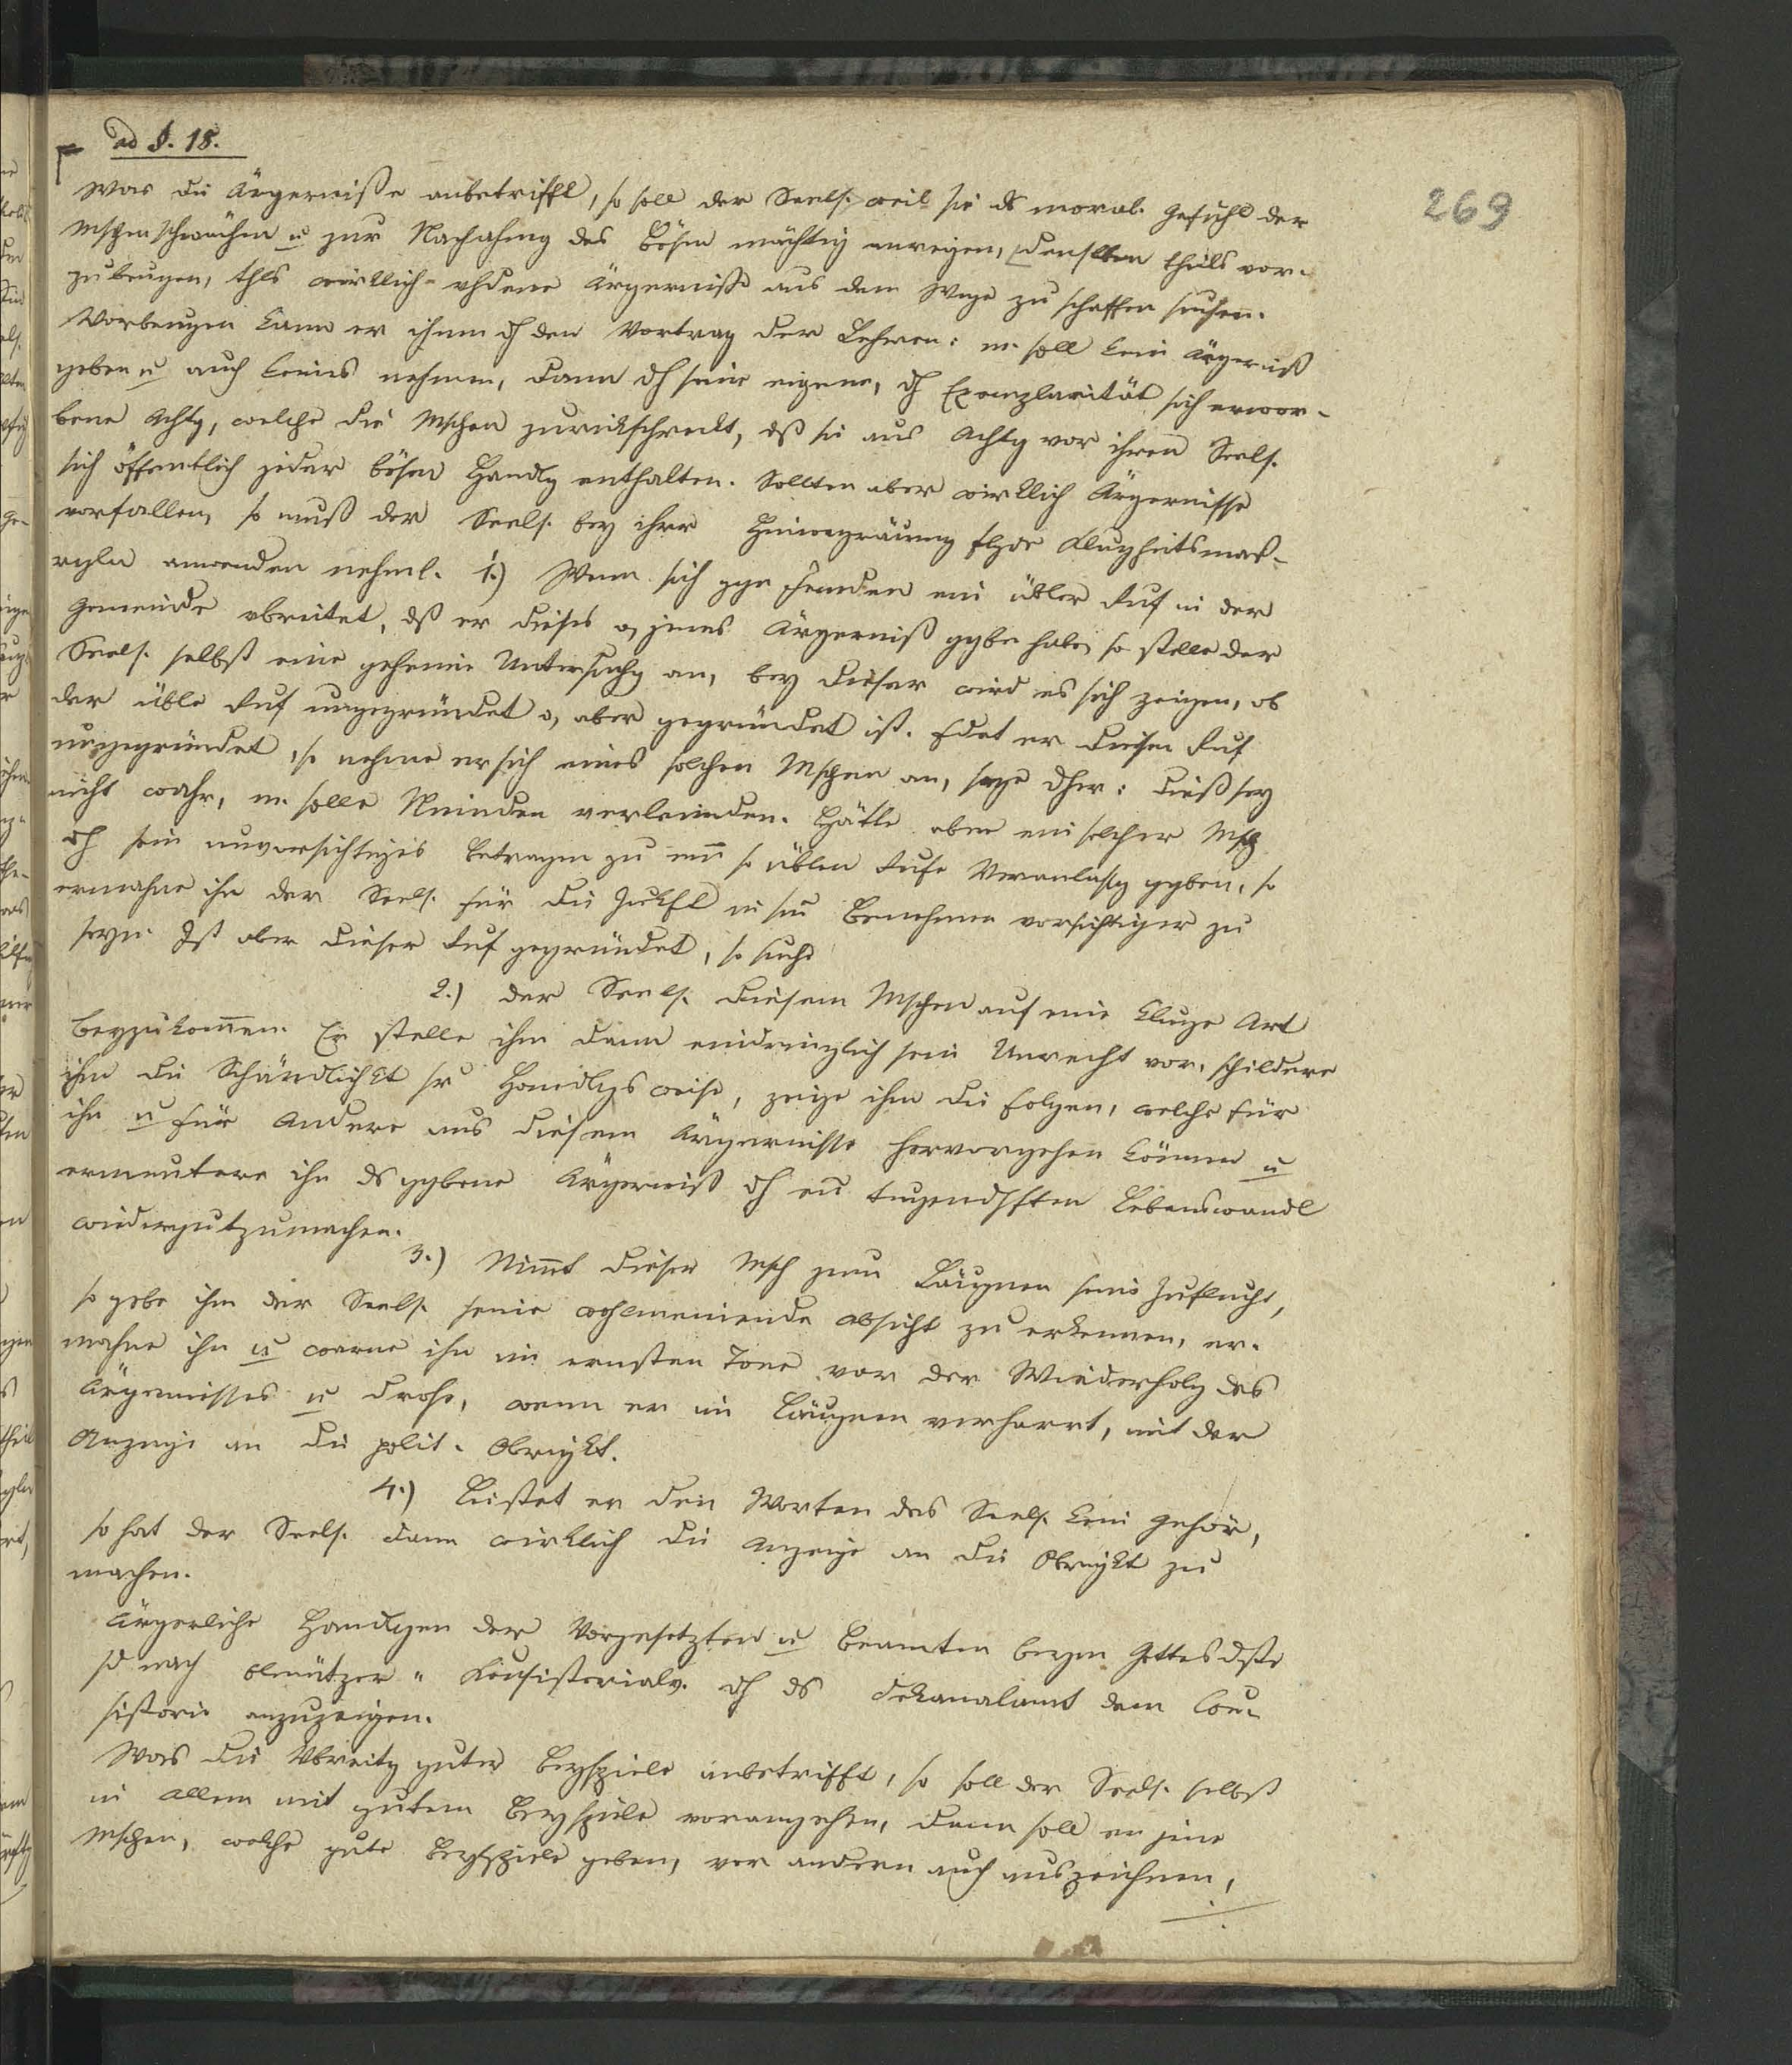 ad §. 18.
269
Was die Ärgerniße anbetrifft, so soll der Seels. weil sie ds moral. Gefühl der
Mschen schwächen u zur Nachahmg des Bösen mächtig anreizen, denselben theils vor-
zubeugen, thls wirklich vhdene Ärgerniße aus dem Wege zu schaffen suchen.
Vorbeugen kann er ihnen dch den Vortrag der Lehren: m. soll kein Ärgerniß
geben u auch keines nehmen, dann dch seine eigene, dch Exemplarität sich erwor-
bene Achtg, welche die Mschen zurückschreckt, dß sie aus Achtg vor ihren Seels.
sich öffentlich jeder bösen Handlg enthalten. Sollten aber wirklich Ärgernisse
vorfallen, so muß der Seels. bey ihrer Hinwegräumg flgde Klugheitsmaß-
regln anwenden nehml. 1.) Wenn sich ggn Jemanden ein übler Ruf in der
Gemeinde vbreitet, dß er dieses o, jenes Ärgerniß ggbn habe, so stelle der
Seels. selbst eine geheime Untersuchg an, bey dieser wird es sich zeigen, ob
der üble Ruf ungegründet o, aber gegründet ist. Fdet er diesen Ruf
ungegründet, so nehme er sich eines solchen Mschen an, sage dher: dieß sey
nicht wahr, m. solle Nminden verleumden. Hätte aber ein solcher Msch
dch sein unvorsichtiges Betragen zu eim so üblen Rufe Veranlassg ggben, so
ermahne ihn der Seels. für die Zukft in sm Benehmen vorsichtiger zu
seyn. Ist aber dieser Ruf gegründet, so suche
2.) der Seels. diesem Mschen auf eine kluge Art
beyzukommen. Er stelle ihm dann eindringlich sein Unrecht vor, schildere
ihm die Schändlichkt sr Handlgsweise, zeige ihm die Folgen, welche für
ihn u für Andere aus diesem Ärgernisse hervorgehen können u
ermuntere ihn ds ggbene Ärgerniß dch en tugendhften Lebenswandl
wiedergutzumachen.
3.) Nimmt dieser Msch zum Läugnen seine Zuflucht,
so gebe ihm der Seels. seine wohlmeinende Absicht zu erkennen, er-
mahne ihn u warne ihn im ernsten Tone vor der Wiederholg des
Ärgernisses u drohe, wenn er im Läugnen verharrt, mit der
Anzeige an die polit. Obrigkt.
4.) Leistet er den Worten des Seels. kein Gehör,
so hat der Seels. dann wirklich die Anzeige an die Obrigkt zu
machen.
Ärgerliche Handlgen der Vorgesetzten u Beamten beym Gottesdste
sd nach Olmützer Konsistorialv. dch ds Dekanalamt dem Con-
sistorio anzuzeigen.
Was die Vbreitg guter Beyspiele anbetrifft, so soll der Seels. selbst
in Allem mit gutem Beyspiele vorangehen, dann soll er jene
Mschen, welche gute Beyspiele geben, vor andern auch auszeichnen,